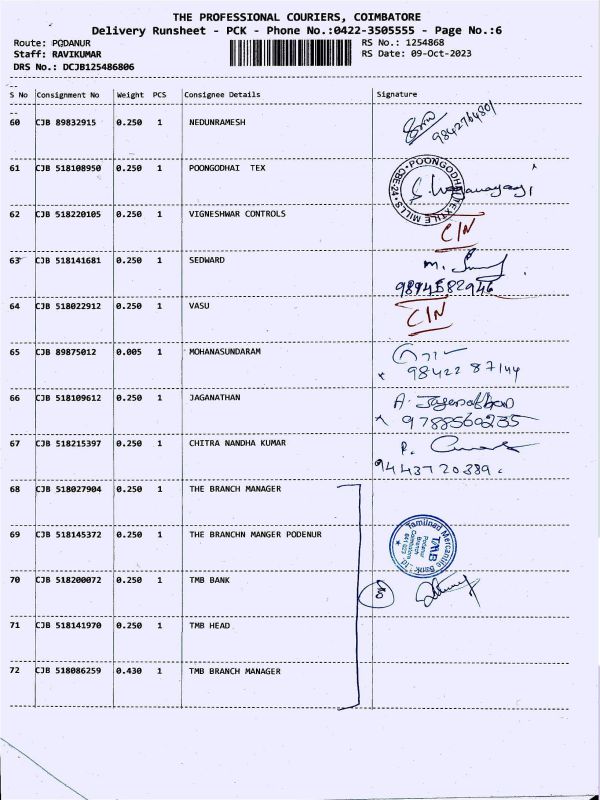 THE PROFESSIONAL COURIERS, COIMBATORE
Delivery Runsheet - PCK - Phone No.:0422-3505555 - Page No.:6
Route: PODANUR
Staff: RAVIKUMAR
DRS No.: DCJB125486806
RS No.: 1254868
RS Date: 09-Oct-2023
S No Consignment No Weight PCS Consignee Details Signature
60 CJB 89832915 0.250 1 NEDUNRAMESH
9842764801
61 CJB 518108950 0.250 1 POONGODHAI TEX
POONGODHAI TEXTILE MILLS CBE-24
62 CJB 518220105 0.250 1 VIGNESHWAR CONTROLS C/N
63 CJB 518141681 0.250 1 SEDWARD M.
9894582946
64 CJB 518022912 0.250 1 VASU C/N
65 CJB 89875012 0.005 1 MOHANASUNDARAM
x 98422 87144
66 CJB 518109612 0.250 1 JAGANATHAN A. Jaganathan
x 9788560235
67 CJB 518215397 0.250 1 CHITRA NANDHA KUMAR P.
9443720389.
68 CJB 518027904 0.250 1 THE BRANCH MANAGER
69 CJB 518145372 0.250 1 THE BRANCHN MANGER PODENUR
Tamilnad Mercantile Bank Ltd.
TMB
Podanur
Branch
Coimbatore
641 023
70 CJB 518200072 0.250 1 TMB BANK
71 CJB 518141970 0.250 1 TMB HEAD
72 CJB 518086259 0.430 1 TMB BRANCH MANAGER